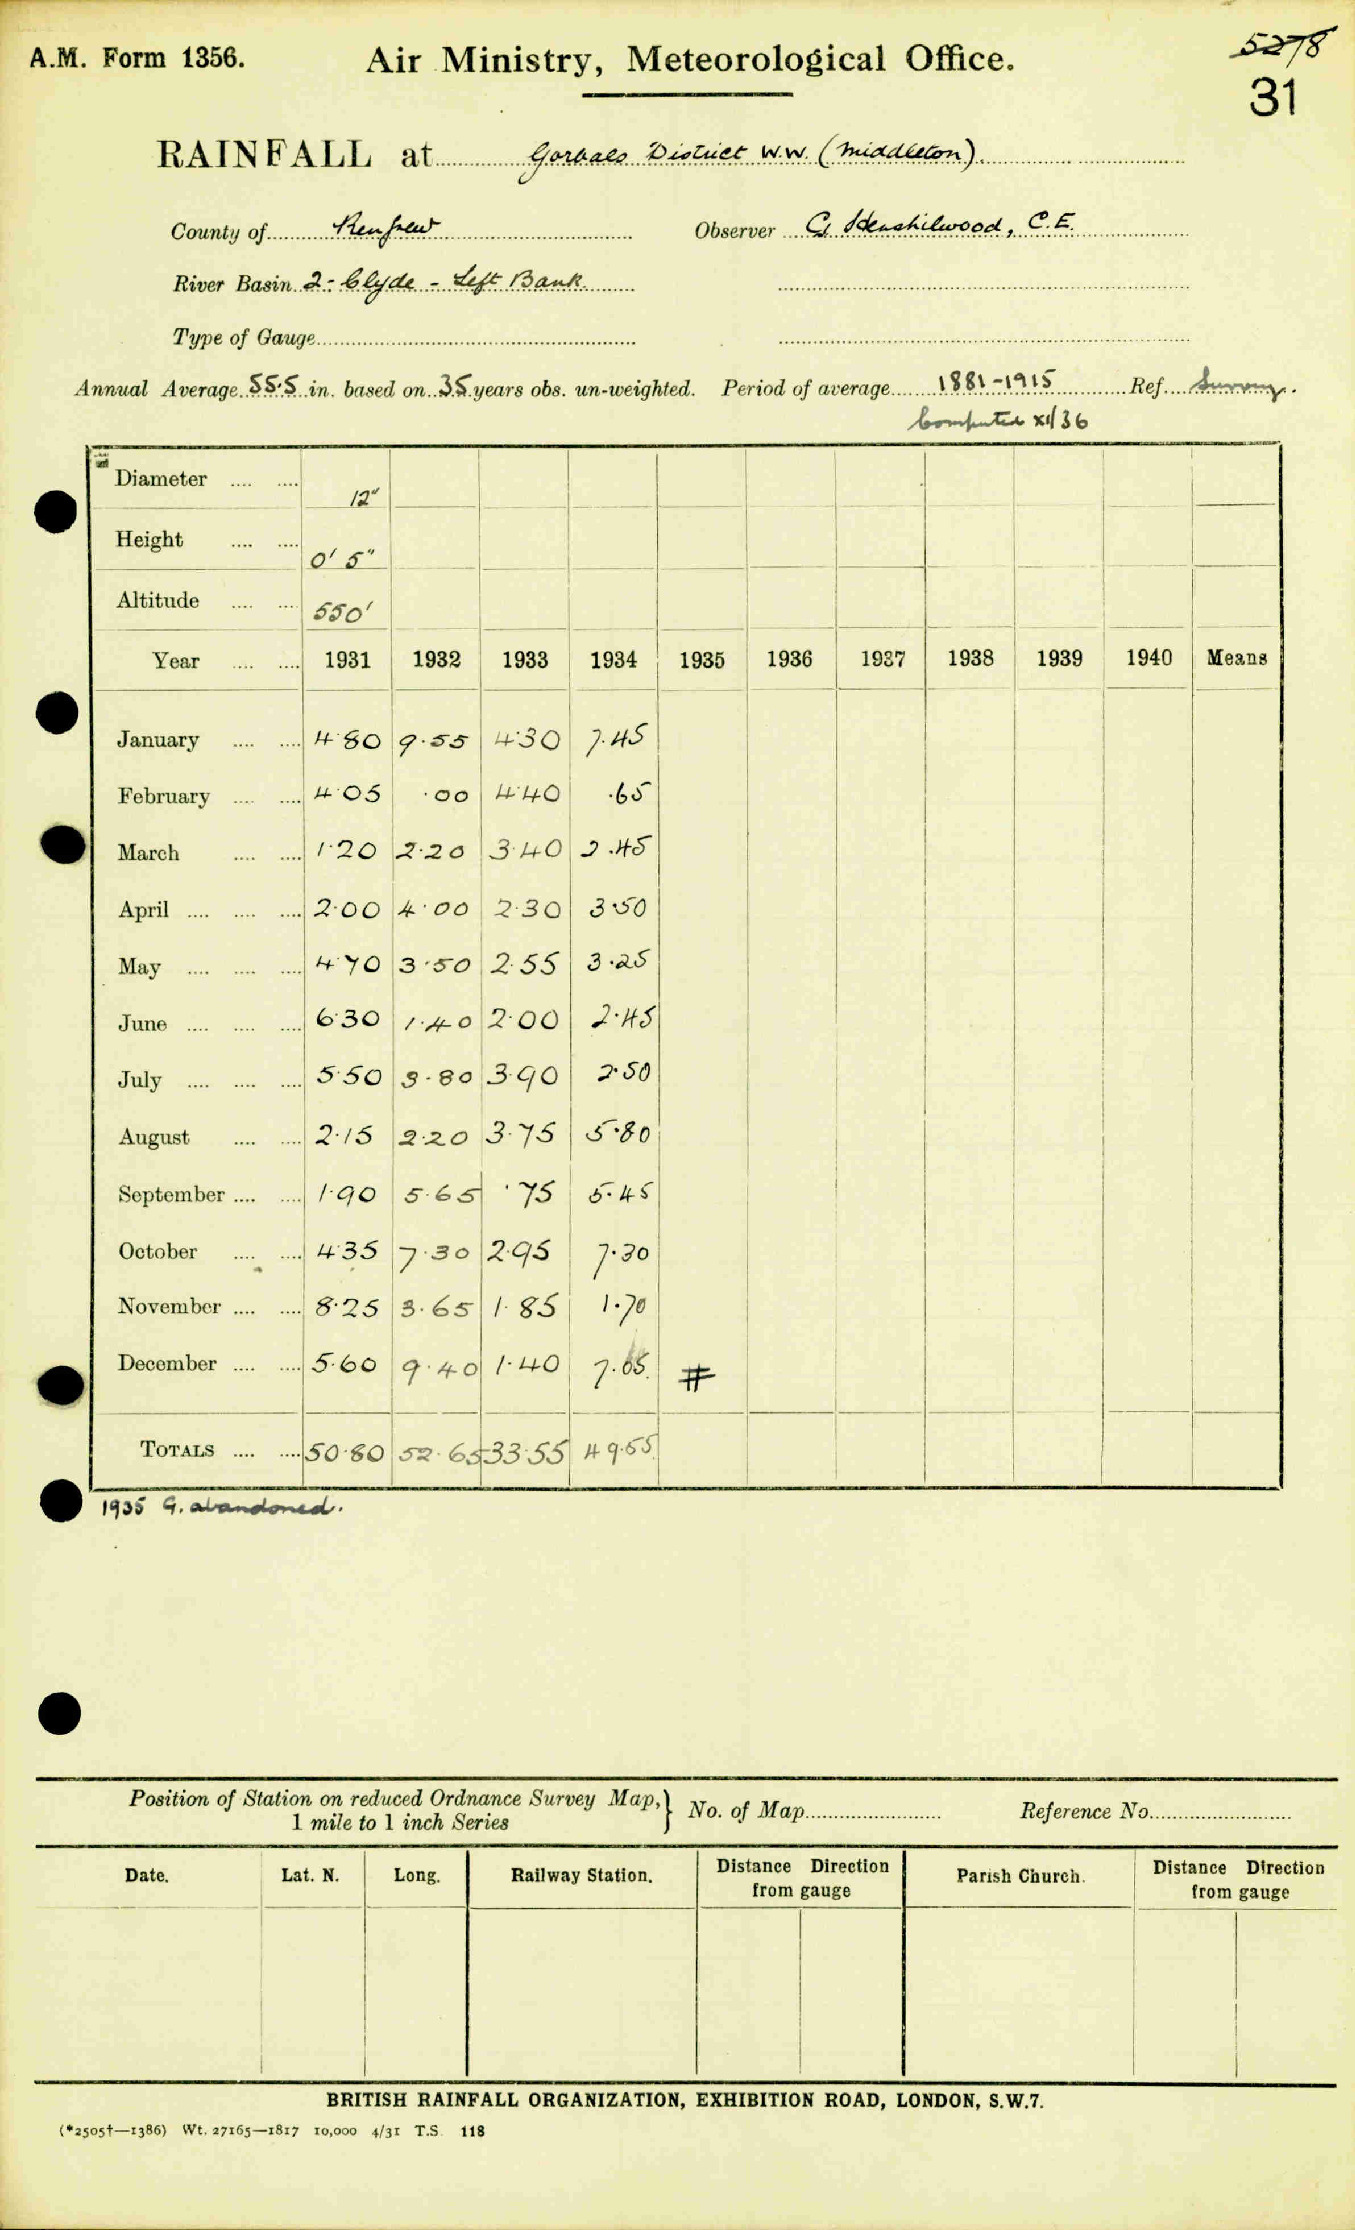 A.M. Form 1356. Air Ministry, Meteorological Office. 5278
31
RAINFALL at Gorbals District W.W. (Middleton).
County of Renfrew Observer G. Henshilwood, C.E.
River Basin 2- Clyde - Left Bank
Type of Gauge
Annual Average 55.5 in. based on 35 years obs. un-weighted. Period of average 1881-1915 Ref. Survey.
Computed XI/36
Diameter .... .... 12"
Height .... .... 0' 5"
Altitude .... .... 550'
Year .... .... 1931 1932 1933 1934 1935 1936 1937 1938 1939 1940 Means
January .... .... 4.80 9.55 4.30 7.45
February .... .... 4.05 .00 4.40 .65
March .... .... 1.20 2.20 3.40 2.45
April .... .... .... 2.00 4.00 2.30 3.50
May .... .... .... 4.70 3.50 2.55 3.25
June .... .... .... 6.30 1.40 2.00 2.45
July .... .... .... 5.50 3.80 3.90 2.50
August .... .... 2.15 2.20 3.75 5.80
September .... .... 1.90 5.65 .75 5.45
October .... .... 4.35 7.30 2.95 7.30
November .... .... 8.25 3.65 1.85 1.70
December .... .... 5.60 9.40 1.40 7.05 #
TOTALS .... .... 50.80 52.65 33.55 49.55
1935 G. abandoned.
Position of Station on reduced Ordnance Survey Map, } No. of Map Reference No.
1 mile to 1 inch Series
Date. Lat. N. Long. Railway Station. Distance Direction from gauge Parish Church. Distance Direction from gauge
BRITISH RAINFALL ORGANIZATION, EXHIBITION ROAD, LONDON, S.W.7.
(*2505†—1386) Wt. 27165—1817 10,000 4/31 T.S. 118